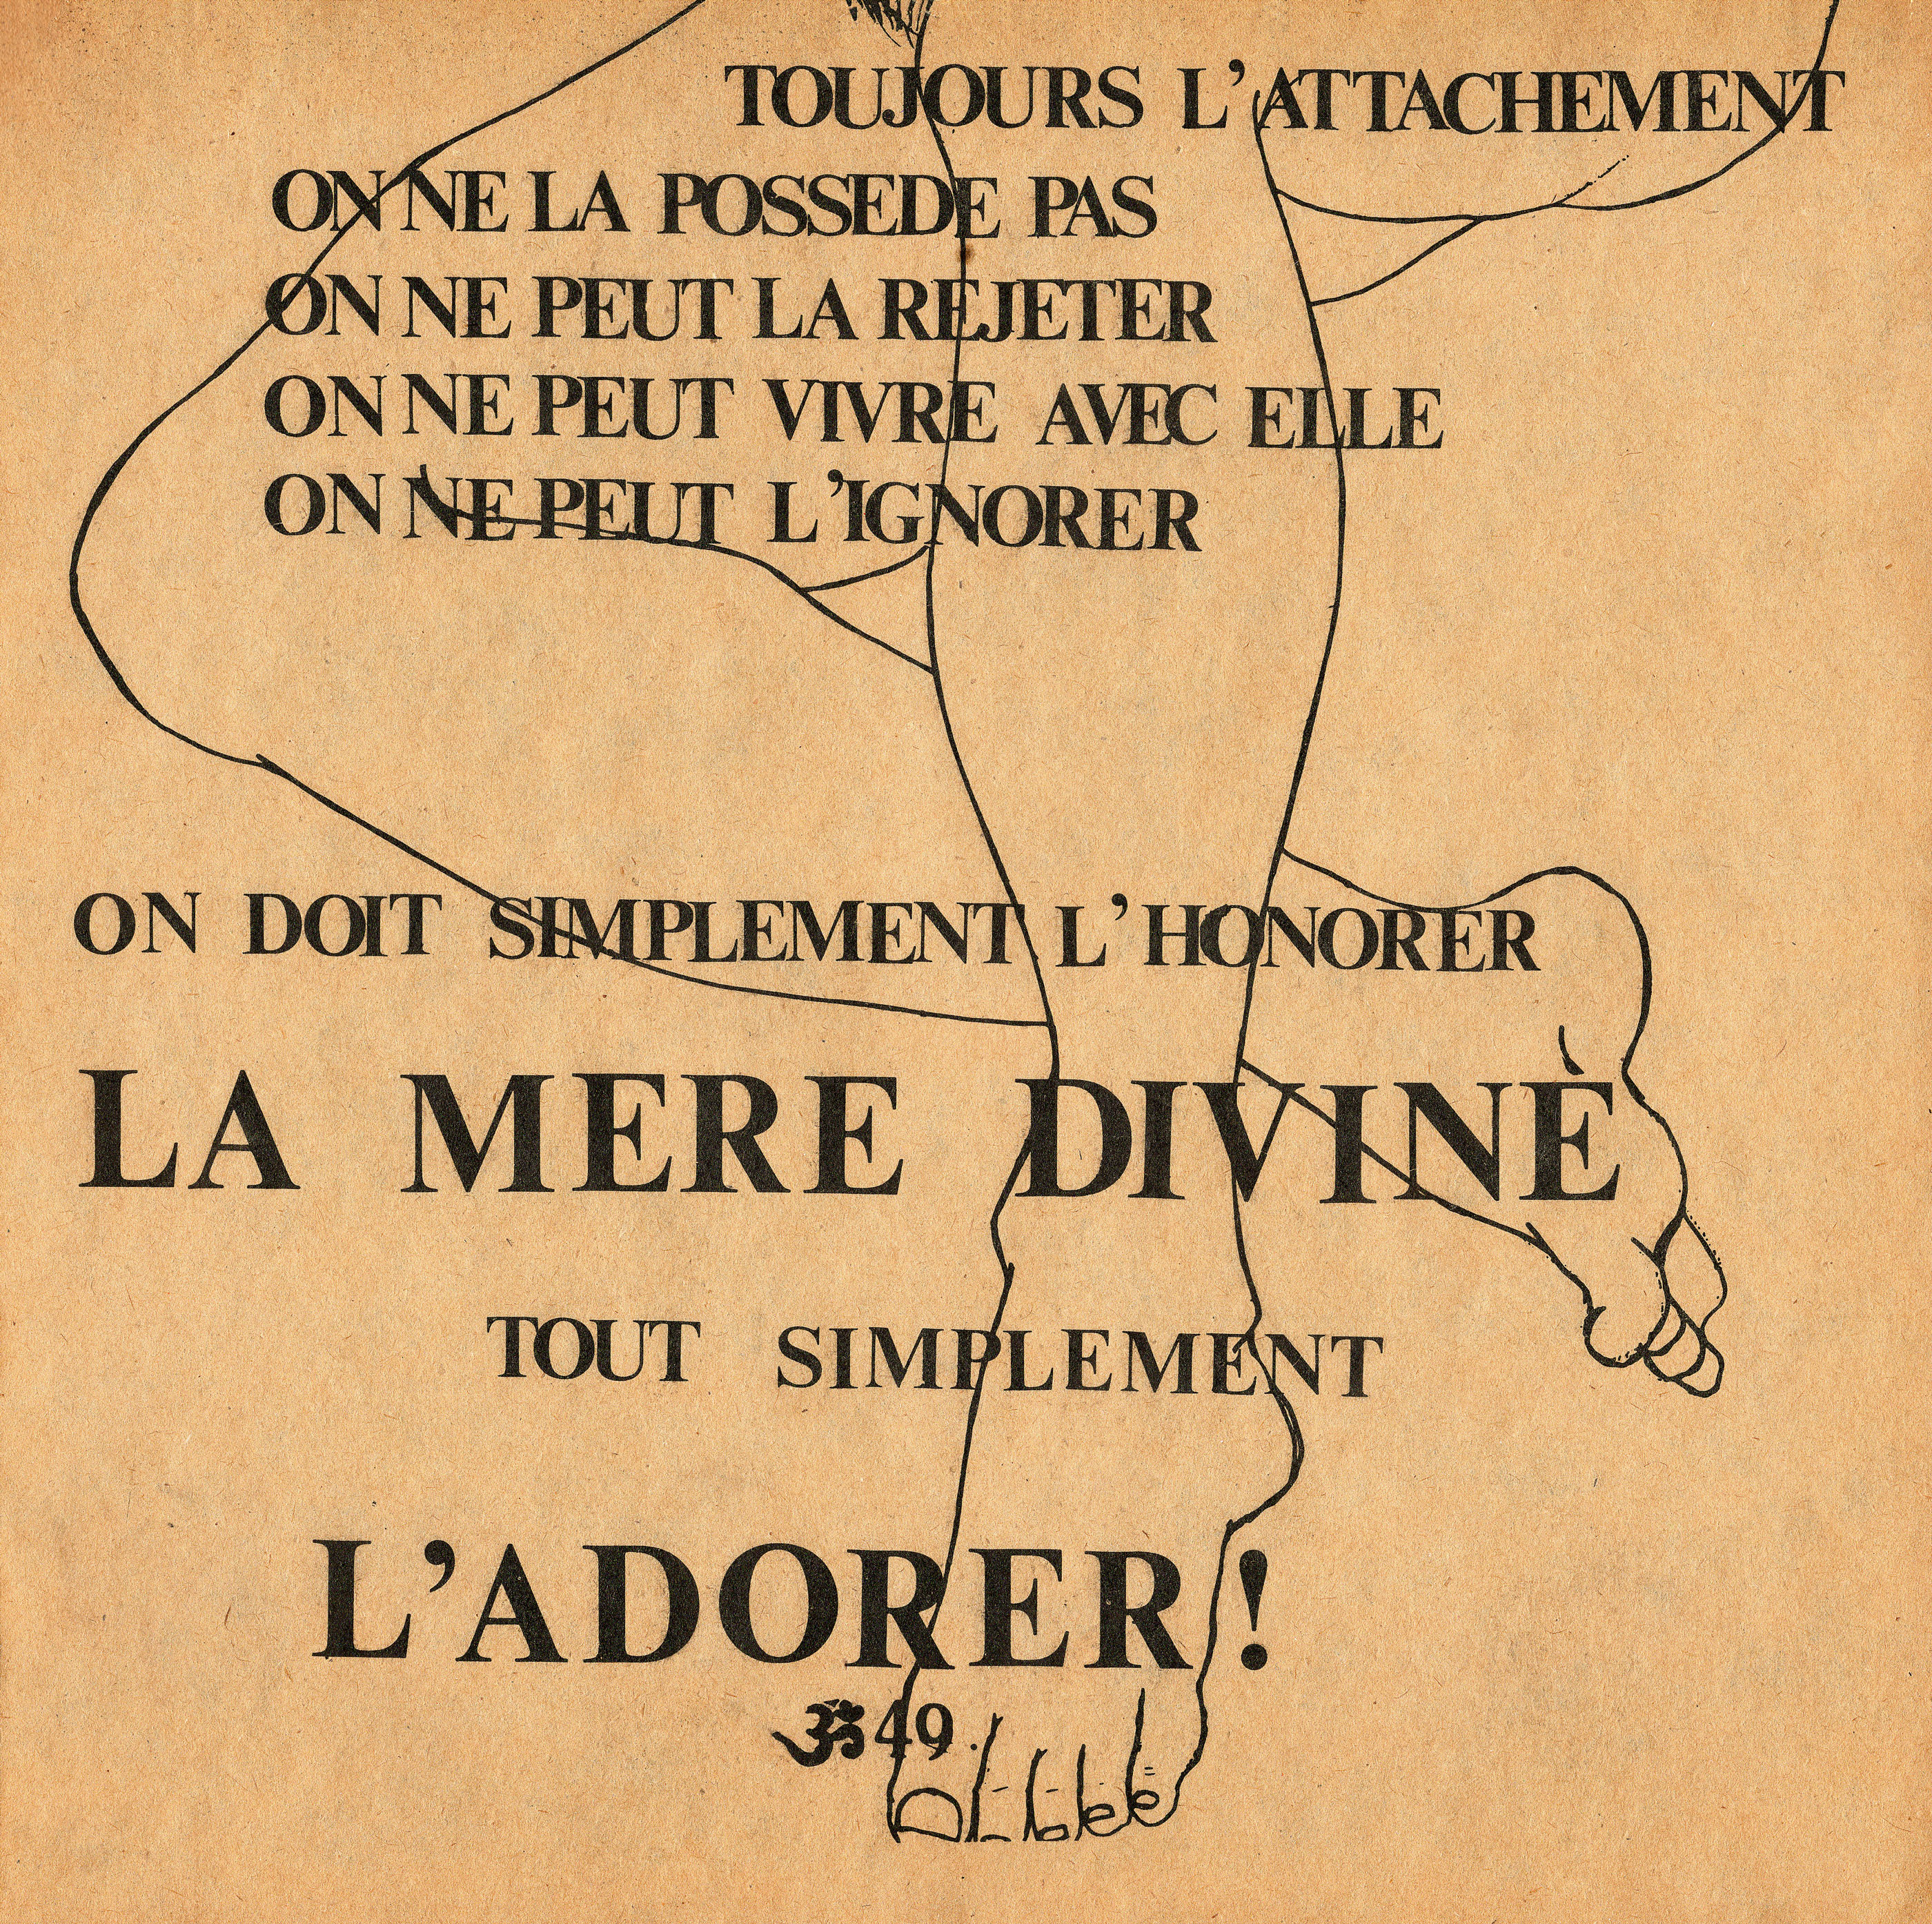 TOUJOURS L'ATTACHEMENT
ON NE LA POSSEDE PAS
ON NE PEUT LA REJETER
ON NE PEUT VIVRE AVEC ELLE
ON NE PEUT L'IGNORER
ON DOIT SIMPLEMENT L'HONORER
LA MERE DIVINÈ
TOUT SIMPLEMENT
L'ADORER!
ॐ 49.